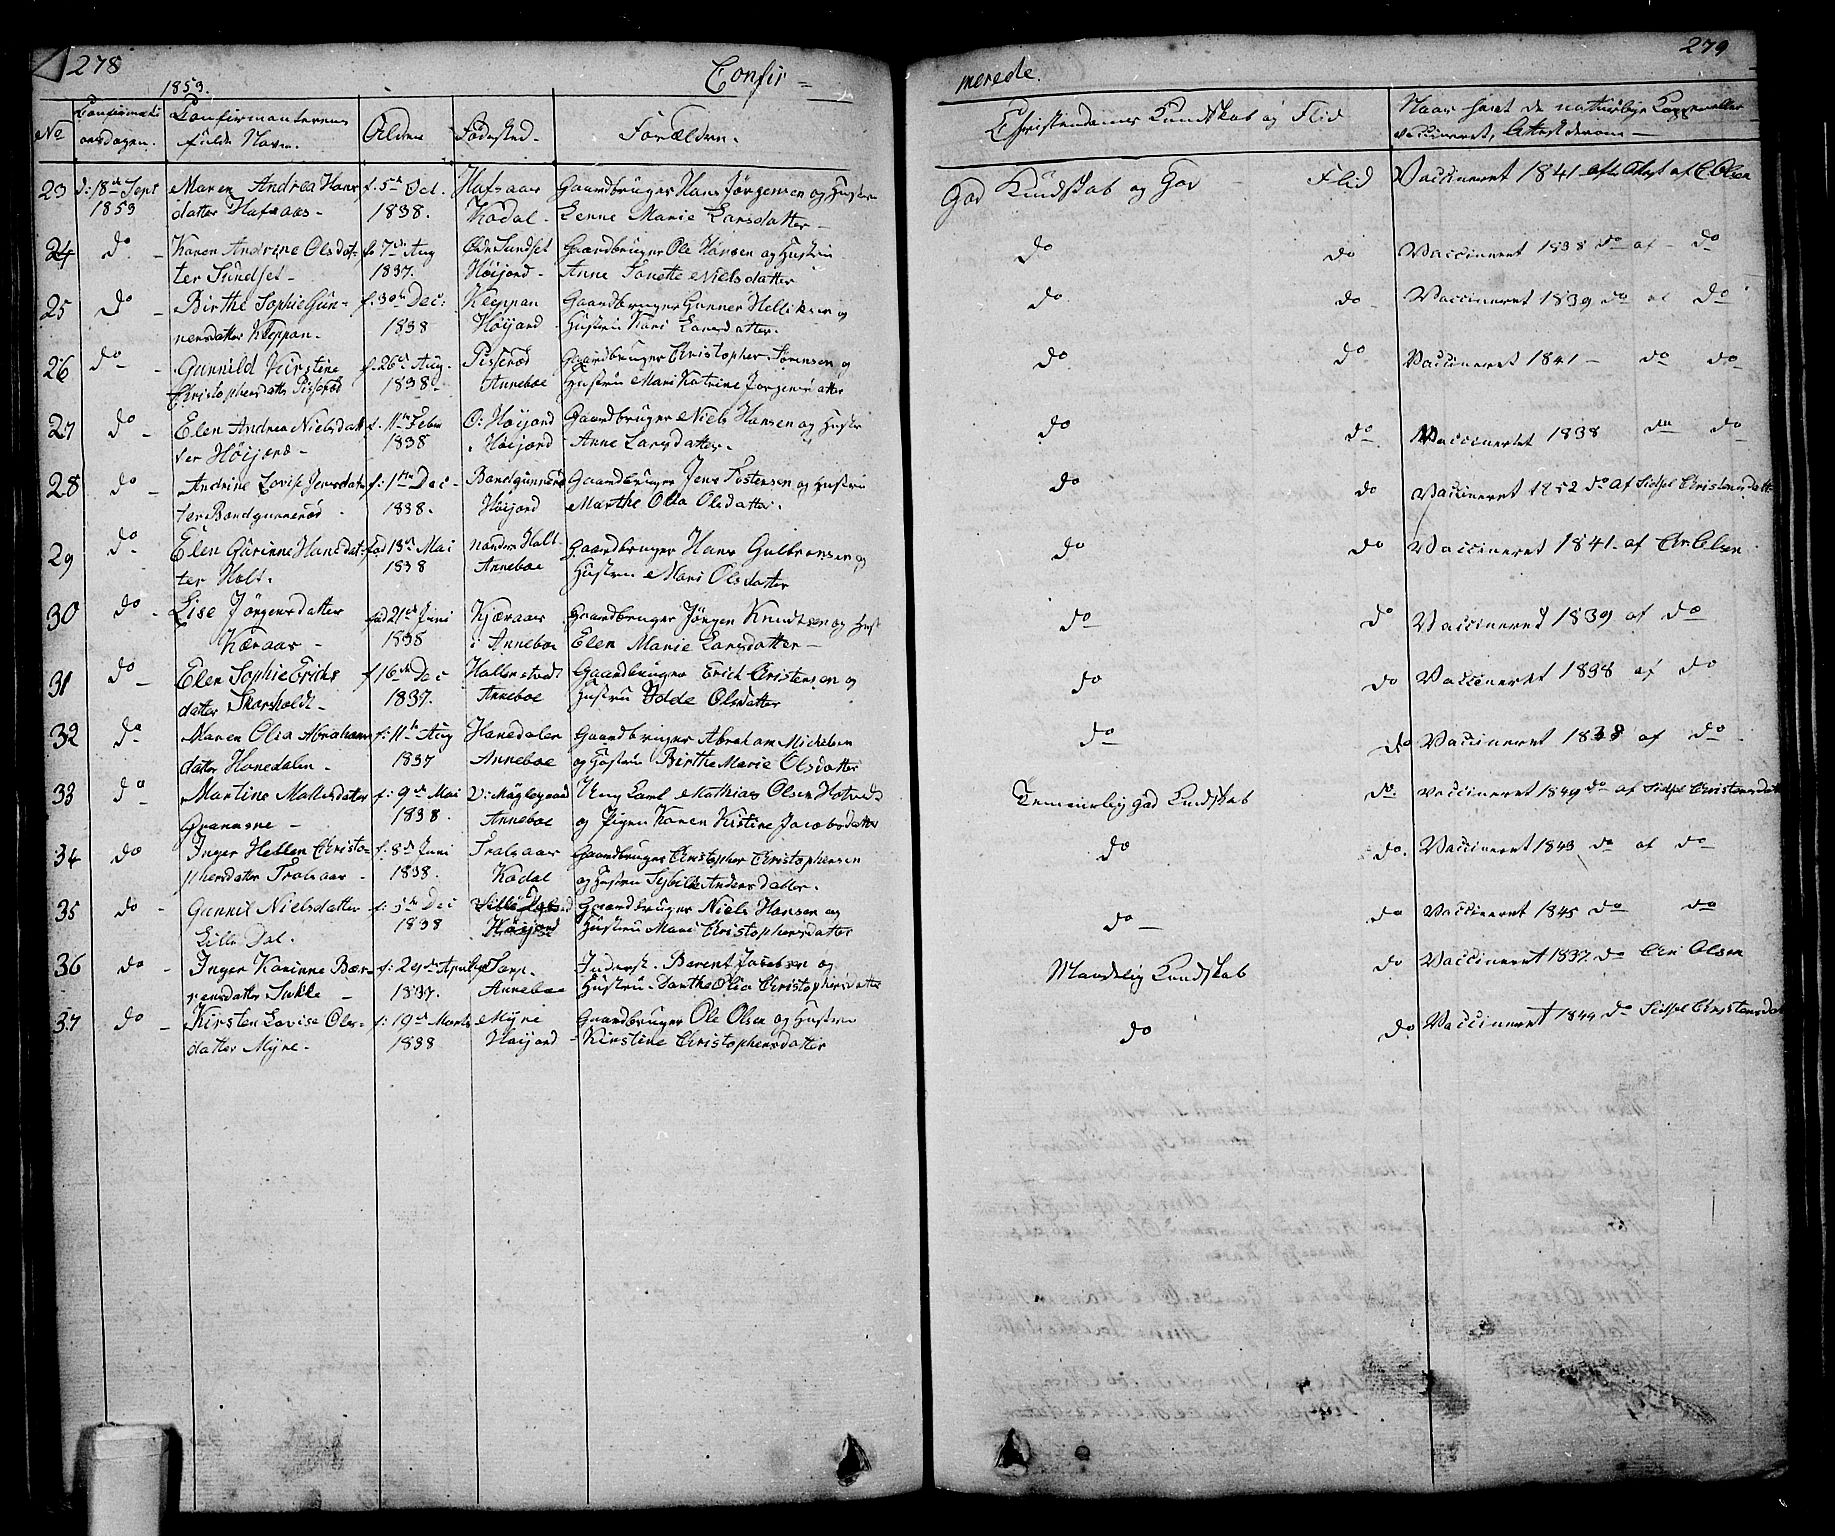 278
1853.
Confir=
No
Confirmati
onsdagen.
Confirmanternes
fulde Navn.
Alder
Fødested.
Forældre.
23 d: 18de Sept Maren Andrea Hans f. 5te Oct. Hafsaas Gaardbruger Hans Jørgensen og Hustru
1853 datter Hafsaas - 1838. Kodal - Lenne Marie Larsdatter -
24 do - Karen Andrine Olsdat- f. 7de Aug Sundset Gaardbruger Ole Hansen og Hustru
ter Sundset - 1837. Høijord - Anne Tonette Nielsdatter
25 do - Birthe Sophie Gun- f: 30te Dec: Kleppan Gaardbruger Gunner Helliksen og
nersdatter Kleppan. 1838 Høijord - Hustru Kari Larsdatter.
26 do - Gunnild Kirstine f. 26de Aug. Pisserød Gaardbruger Christopher Sørensen og
Christophersdatter Pisserød 1838 - Anneboe Hustru Mari Katrine Jørgensdatter
27 do - Elen Andrea Nielsdat f. 11te Febr O: Høijord Gaardbruger Niels Hansen og Hustru
ter Høijord - 1838 Høijord - Anne Larsdatter -
28 do - Andrine Lovise Jensdat f: 1te Dec - Bondgunnerød Gaardbruger Jens Tostensen og Hustru
ter Bondgunnerød - 1838. Høijord Marthe Olea Olsdatter.
29 do - Elen Gurinne Hansdat- fød 13de Mai nordre Holt Gaardbruger Hans Gulbransen og
ter Holt. 1838 Anneboe Hustru Mari Olsdatter
30 do - Lise Jørgensdatter fød 21de Juni Kjæraas Gaardbruger Jørgen Knudtsen og Hust
Kæraas - 1838 i Anneboe Elen Marie Larsdatter -
31 do - Elen Sophie Erichs f 16de Dec Hallenstvedt Gaardbruger Erich Cristensen og
datter Skorsholdt - 1837. Anneboe Hustru Olsdatter
32 do - Maren Olea Abrahams f: 11te Aug Hanedalen Gaardbruger Abraham Mickelsen
datter Hanedalen - 1837 Anneboe og Hustru Birthe Marie Olsdatter
33 do - Martine Mattisdatter f: 9de Mai V: Møglegaard Ung Karl Mathias Olsen Hotvedt
Granaasne - 1838. Anneboe og Pigen Karen Kistine Jacobsdatter
34 do Inger Hellen Christo- f: 8de Juni Trolsaas Gaardbruger Christopher Christophersen
phersdatter Trolsaas - 1838. Kodal og Hustru Sybille Andersdatter.
35 do - Gunnil Nielsdatter f: 5te Dec Lille Dal Gaardbruger Niels Hansen og
Lille Dal. 1838 Høijord Hustru Mari Christophersdatter
36 do - Inger Karinne Bær- f: 29de April Sarp. Inderst. Barent Jacobsen og
rensdatter - 1837. Anneboe Hustru Dorthe Olea Christophersdatter
37 do - Kirsten Lovise Ols- f: 19de Marts Myre Gaardbruger Ole Olsen og Hustru
datter Myre - 1838 Høijord - Kirstine Christophersdatter
279
merede.
Christendoms Kundskab og Flid
Naar havt de naturlige Kopper eller
vaccineret, Attest derom -
God Kundskab og God - Flid Vaccineret 1841 af Olsen
do do Vaccineret 1838 do af - do
do do - Vaccineret 1839 do af do
do do Vaccineret 1841 - do do
do do. Vaccineret 1838 do do
do do Vaccineret 1852 do af Sidsel Christensdatt
do do Vaccineret 1841. af Olsen
do do Vaccineret 1839 af do
do do Vaccineret 1838 af do
do do Vaccineret 1838 af do
Temmelig god Kundskab do. Vaccineret 1849 do af Sidsel Christensdatt
do do. Vaccineret 1843 do af do
do - do Vaccineret 1845 do do
Maadelig Kundskab do Vaccineret 1837 do Olsen
do do. Vaccineret 1849 do Sidsel Christensdat